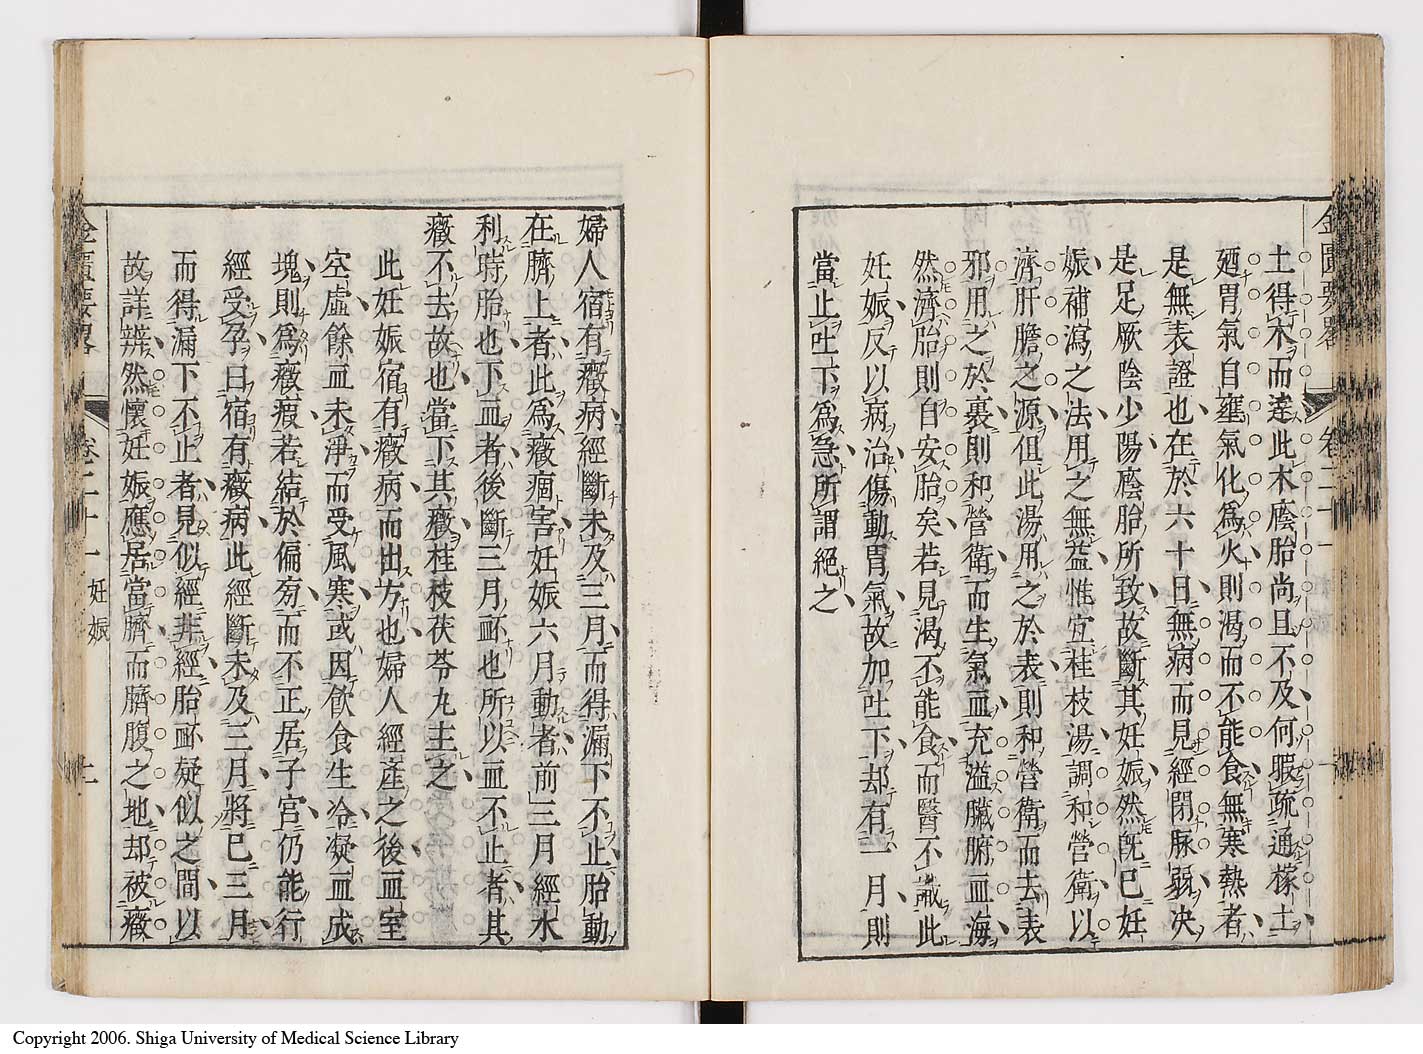 土得木而達此木廕胎尚且不及何暇疏通稼土
廼胃氣自壅氣化為火則渴而不能食無寒熱者
是無表證也在於六十日無病而見經閉脉弱决
是足厥陰少陽廕胎所致故斷其妊娠然旣巳妊
娠補瀉之法用之無益惟宜桂枝湯調和營衛以
濟肝膽之源但此湯用之於表則和營衛而去表
邪用之於裏則和營衛而生氣血充溢臟腑血海
然濟胎則自安胎矣若見渴不能食而醫不識此
妊娠反以病治傷動胃氣故加吐下却有一月則
當止吐下為急所謂絕之
婦人宿有癥病經斷未及三月而得漏下不止胎動
在臍上者此為癥痼害妊娠六月動者前三月經水
利時胎也下血者後斷三月衃也所以血不止者其
癥不去故也當下其癥桂枝茯苓丸主之
此妊娠宿有癥病而出方也婦人經產之後血室
空虛餘血未淨而受風寒或因飲食生冷凝血成
塊則為癥瘕若結於偏旁而不正居子宮仍能行
經受孕曰宿有癥病此經斷未及三月將巳三月
而得漏下不止者見似經非經胎衃疑似之間以
故詳辨然懷妊娠應居當臍而臍腹之地却被癥
金匱要略 卷二十一 妊娠
Copyright 2006. Shiga University of Medical Science Library